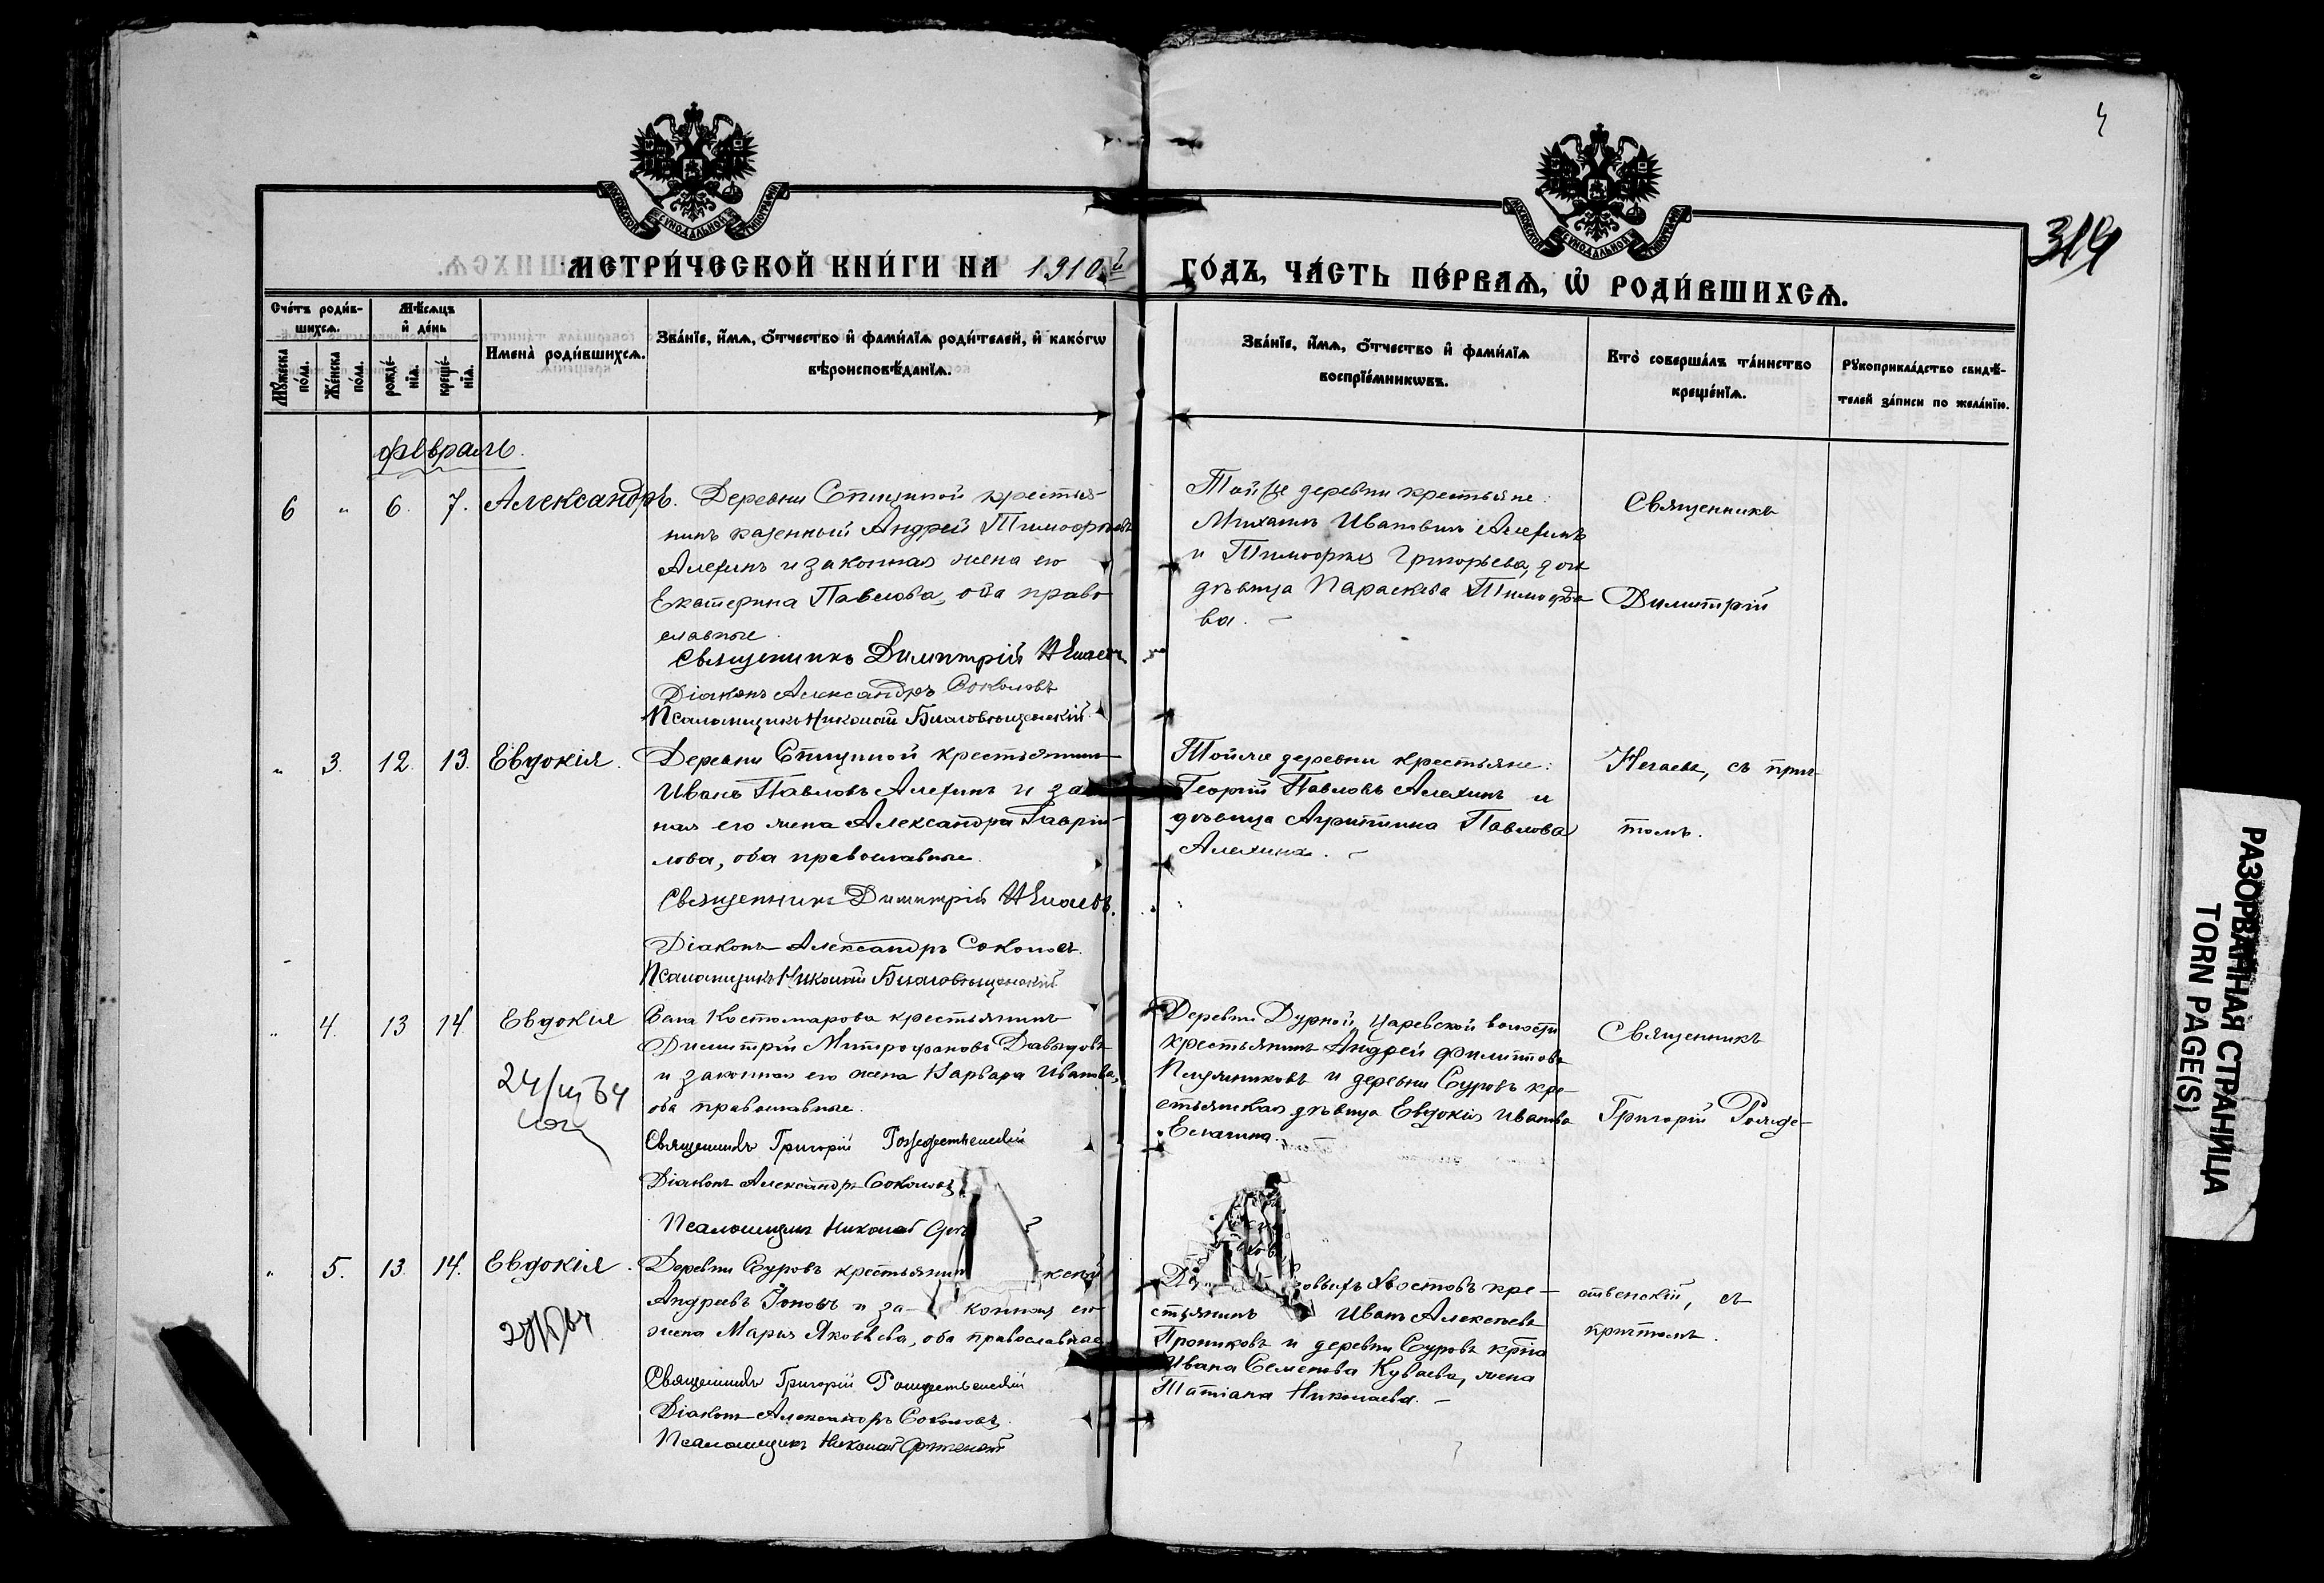 4
314
МЕТРИ́ЧЕСКОЙ КНИ́ГИ НА 1910й ГО́ДЪ, ЧА́СТЬ ПЕ́РВАѦ, Ѡ РОДИ́ВШИХСѦ.
Сче́тъ роди́в-
шихсѧ.
Мꙋ́жеска по́ла.
Же́нска по́ла.
Мѣ́сѧцъ
и҆ де́нь
рожде́-
нїѧ.
креще́-
нїѧ.
Имена̀ роди́вшихсѧ.
Зва́нїе, и҆́мѧ, ѻ҆́тчество и҆ фами́лїѧ роди́телей, и҆ како́гѡ
вѣроисповѣ́данїѧ.
Зва́нїе, и҆́мѧ, ѻ҆́тчество и҆ фами́лїѧ
воспрїе́мникѡвъ.
Кто̀ соверша́лъ та́инство
креще́нїѧ.
Рꙋкоприкла́дство свидѣ́-
телей за́писи по жела́нїю.
Февраль.
6 " 6. 7. Александръ.
Деревни Спицыной крестья-
нинъ казенный Андрей Тимофѣевъ
Алехинъ и законная жена его
Екатерина Павлова, оба право-
славные.
Священникъ Димитрій Нечаевъ
Діаконъ Александръ Соколовъ
Псаломщикъ Николай Благовѣщенскій.
Той же деревни крестьяне:
Михаилъ Ивановъ Алехинъ
и Тимофея Григорьева, дочь
дѣвица Параскева Тимофѣе-
ва. –
Священникъ
Димитрій
" 3. 12. 13. Евдокія.
Деревни Спицыной крестьянинъ
Иванъ Павловъ Алехинъ и за
ная его жена Александра Гаврии-
лова, оба православные.
Священникъ Димитрій Нечаевъ.
Діаконъ Александръ Соколовъ.
Псаломщикъ Николай Благовѣщенскій
Той же деревни крестьяне:
Георгій Павловъ Алехинъ и
дѣвица Агриппина Павлова
Алехина. –
Нечаевъ, съ прич-
томъ.
" 4. 13 14. Евдокія
Села Костомарова крестьянинъ
Димитрій Митрофановъ Давыдовъ
и законная его жена Варвара Иванова,
оба православные.
Священникъ Григорій Рождественскій
Діаконъ Александръ Соколовъ
Псаломщикъ Николай
Деревни Дурной, Царевской волости
крестьянинъ Андрей Филиповъ
и деревни Суровъ кре-
стьянская дѣвица Евдокія Иванова
Елагина.
Священникъ
Григорій Рожде-
" 5. 13. 14. Евдокія.
Деревни Суровъ крестьянин
Андреевъ Іоновъ и за- конная его
жена Марія Яковлева, оба православные
Священникъ Григорій Рождественскій
Діаконъ Александръ Соколовъ.
Псаломщикъ Николай
овыхъ Хвостовъ кре-
стьянинъ Иванъ Алексѣевъ
Прониковъ и деревни Суровъ кр-на
Ивана Семенова Куваева, жена
Татіана Николаева. –
ственскій, съ
причтомъ.
РАЗОРВАННАЯ СТРАНИЦА
TORN PAGE(S)